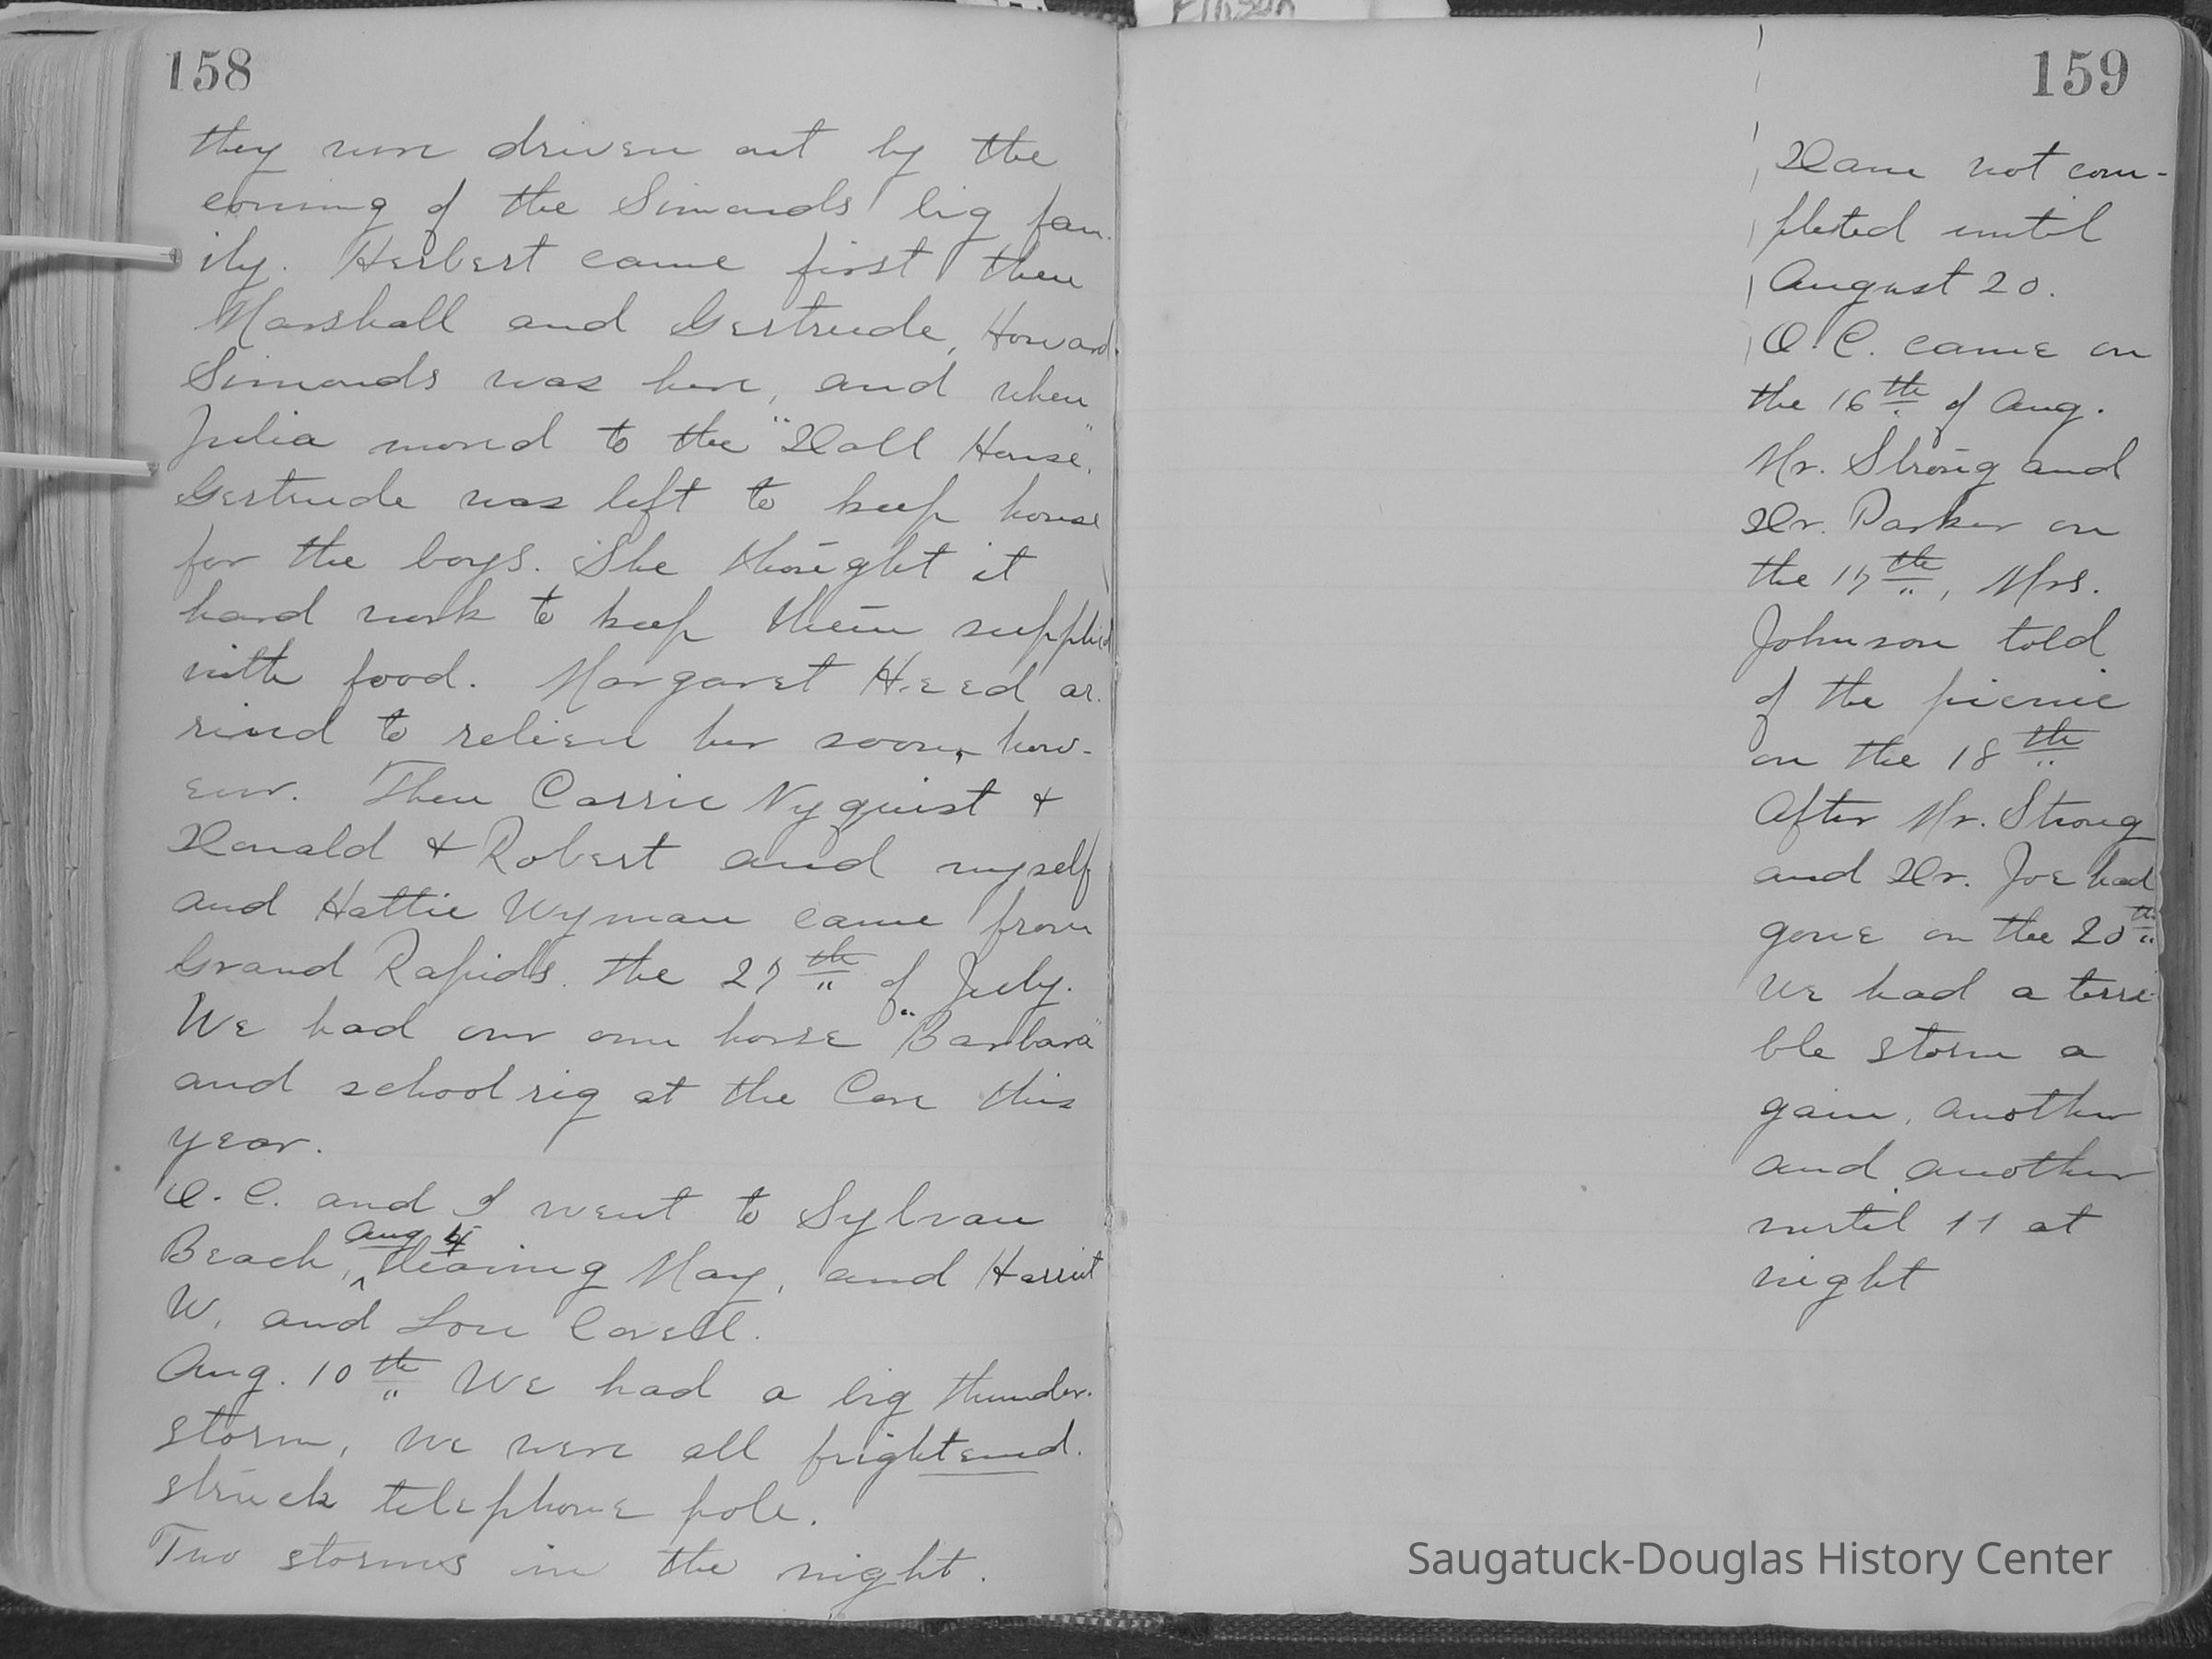 158
they were driven out by the
coming of the Simonds' big fam-
ily. Herbert came first then
Marshall and Gertrude, Howard
Simonds was here, and when
Julia moved to the "Doll House".
Gertrude was left to keep house
for the boys. She thought it
hard work to keep them supplied
with food. Margaret Heed ar-
rived to relieve her soon, how-
ever. Then Carrie Nyquist +
Donald + Robert and myself
and Hattie Wyman came from
Grand Rapids. the 27th of July.
We had our own horse "Barbara"
and school rig at the Cove this
year.
O. C. and I went to Sylvan
Aug 4
Beach, leaving May, and Harriet
W. and Lou Covell.
Aug. 10th We had a big thunder-
storm, we were all frightened.
struck telephone pole.
Two storms in the night.
159
Dam not com-
pleted until
August 20.
O. C. came on
the 16th of Aug.
Mr. Strong and
Dr. Parker on
the 17th, Mrs.
Johnson told
of the picnic
on the 18th
After Mr. Strong
and Dr. Joe had
gone on the 20th
we had a terri-
ble storm a
gain, another
and another
until 11 at
night
Saugatuck-Douglas History Center